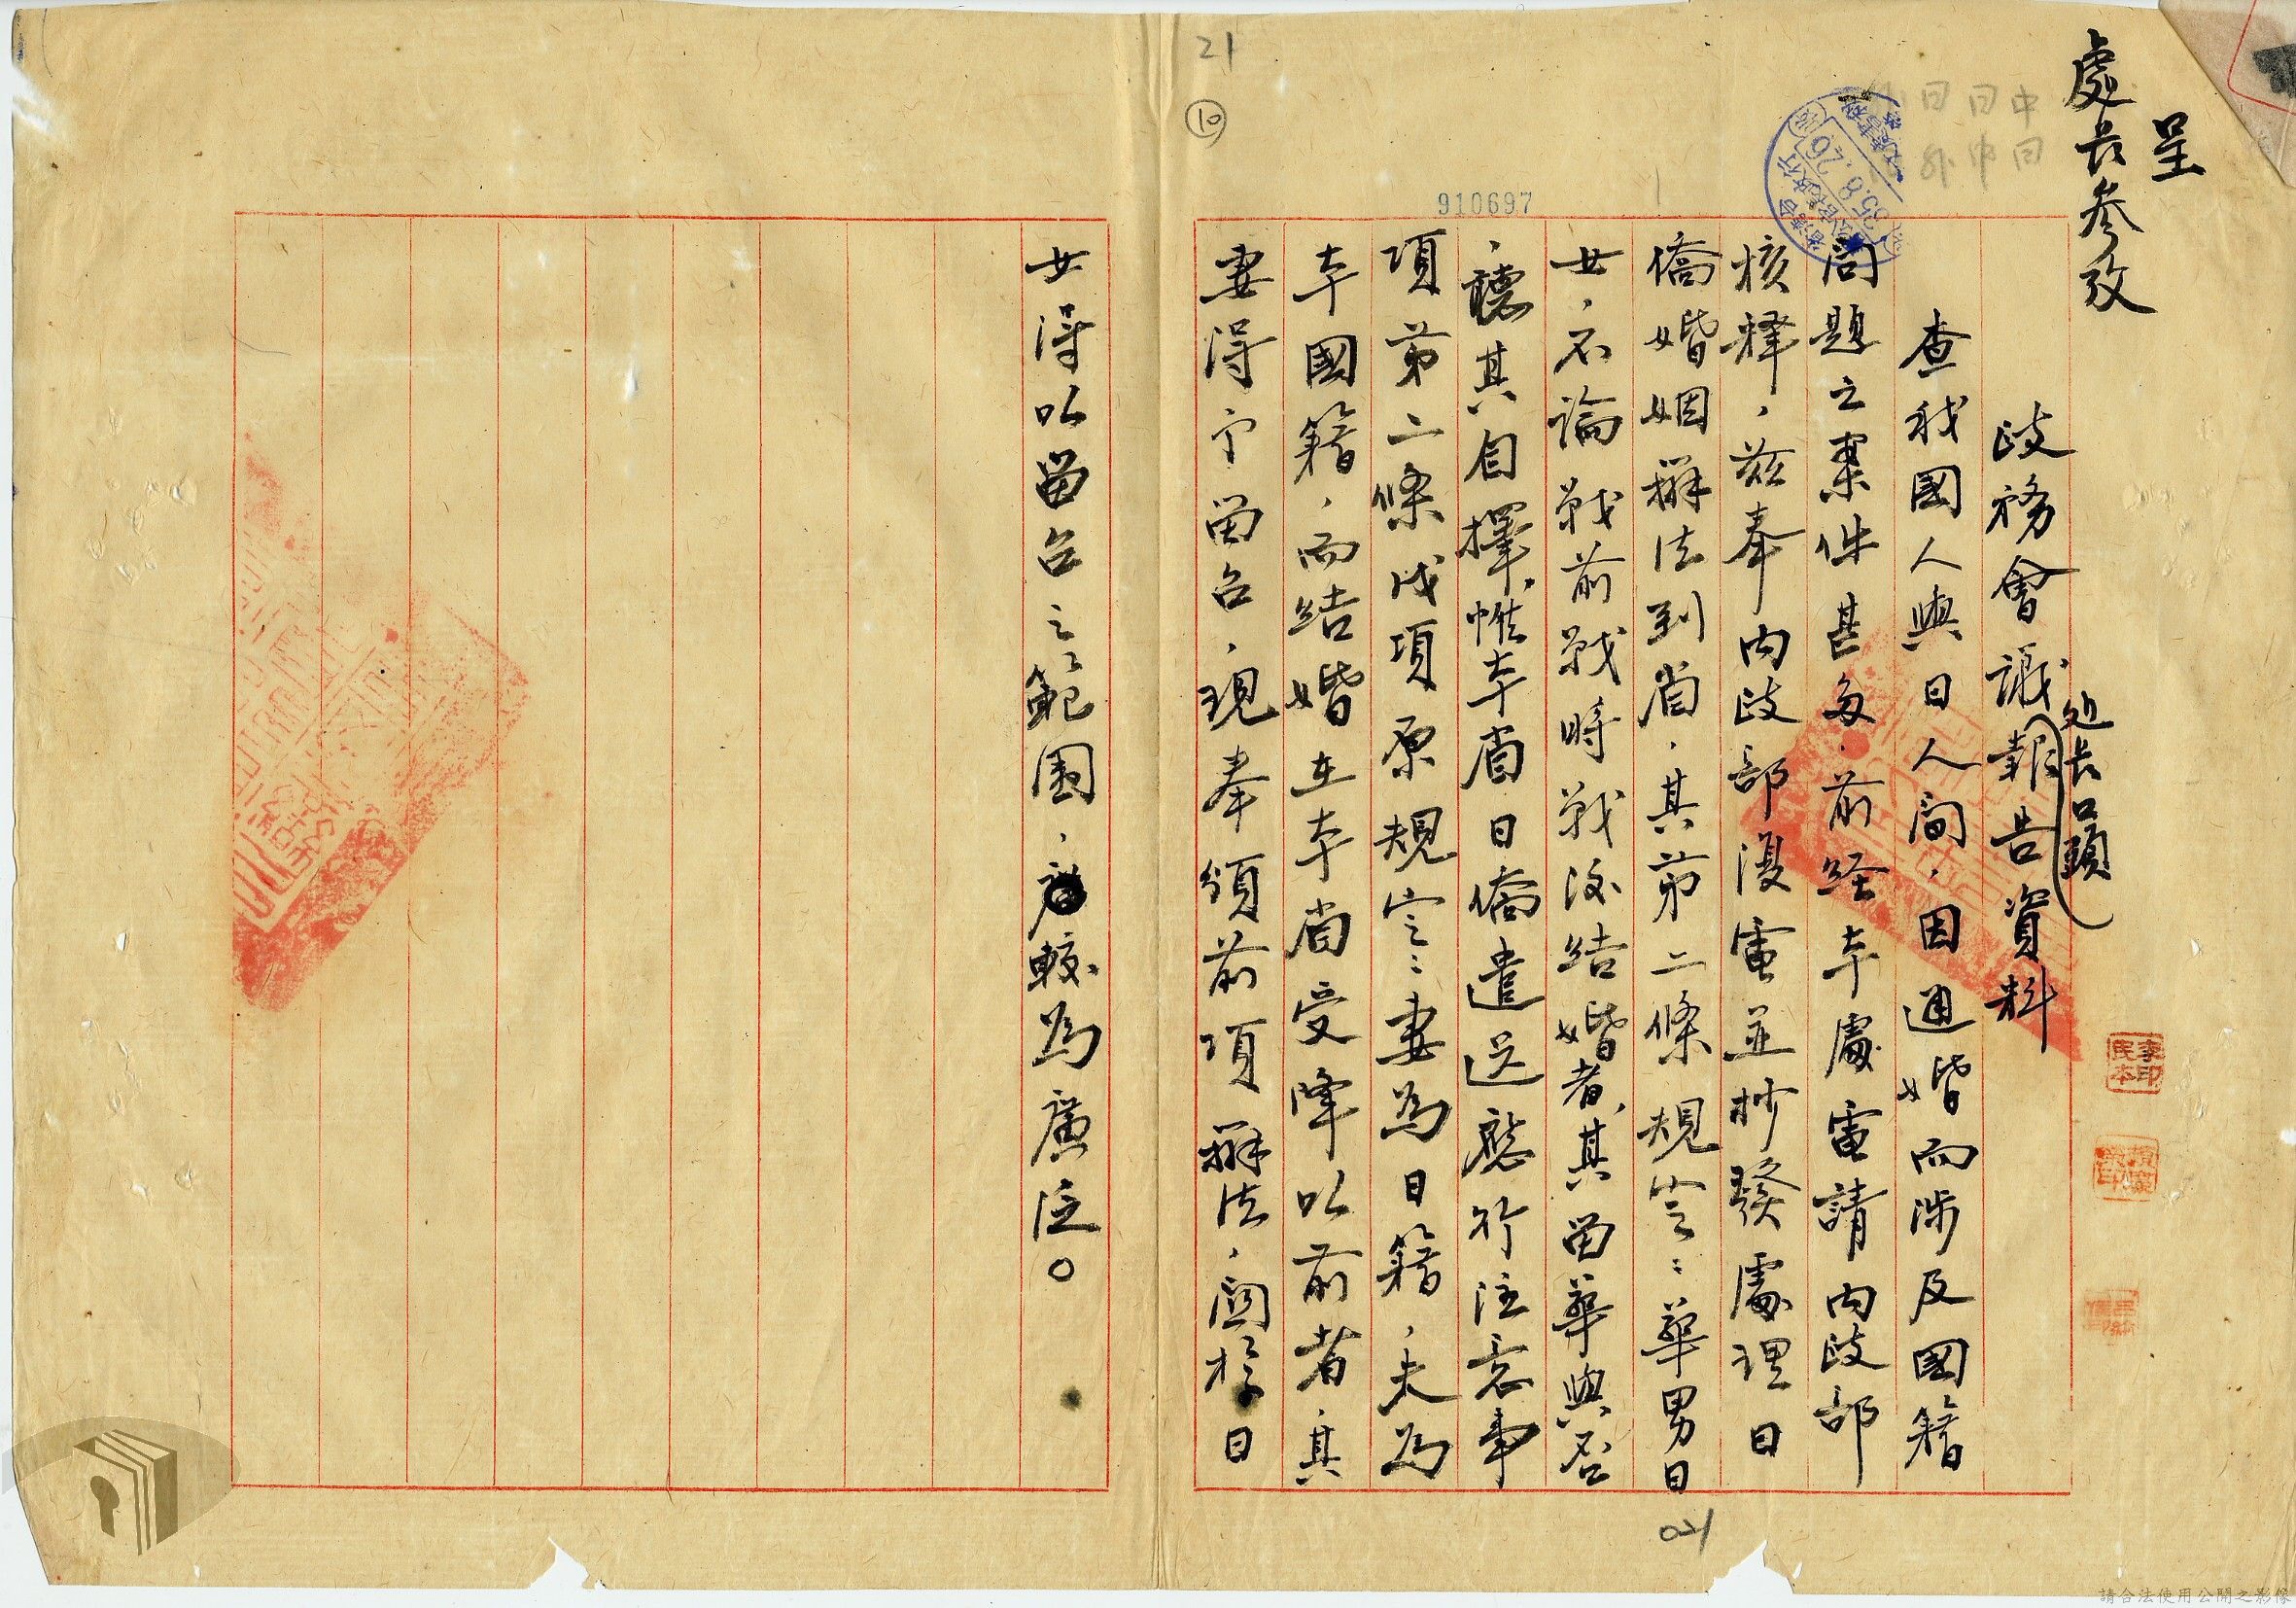 呈
處長參攷
政務會議報告資料
处長口頭
查我國人與日人間，因通婚而涉及國籍
問題之案件甚多，前経本處電請內政部
核釋，茲奉內政部漫電並抄發處理日
僑婚姻辦法到省，其第二條規定：華男日
女，不論戰前戰時戰後結婚者，其留華與否
，聽其自擇，惟本省日僑遣送應行注意事
項第二條戊項原規定：妻為日籍，夫為
本國籍，而結婚在本省受降以前者，其
妻得予留台，現奉頒前項辦法，關於日
女得以留台之範圍，較為廣泛。
910697
21
10
21
35.8.26
請合法使用公開之影像